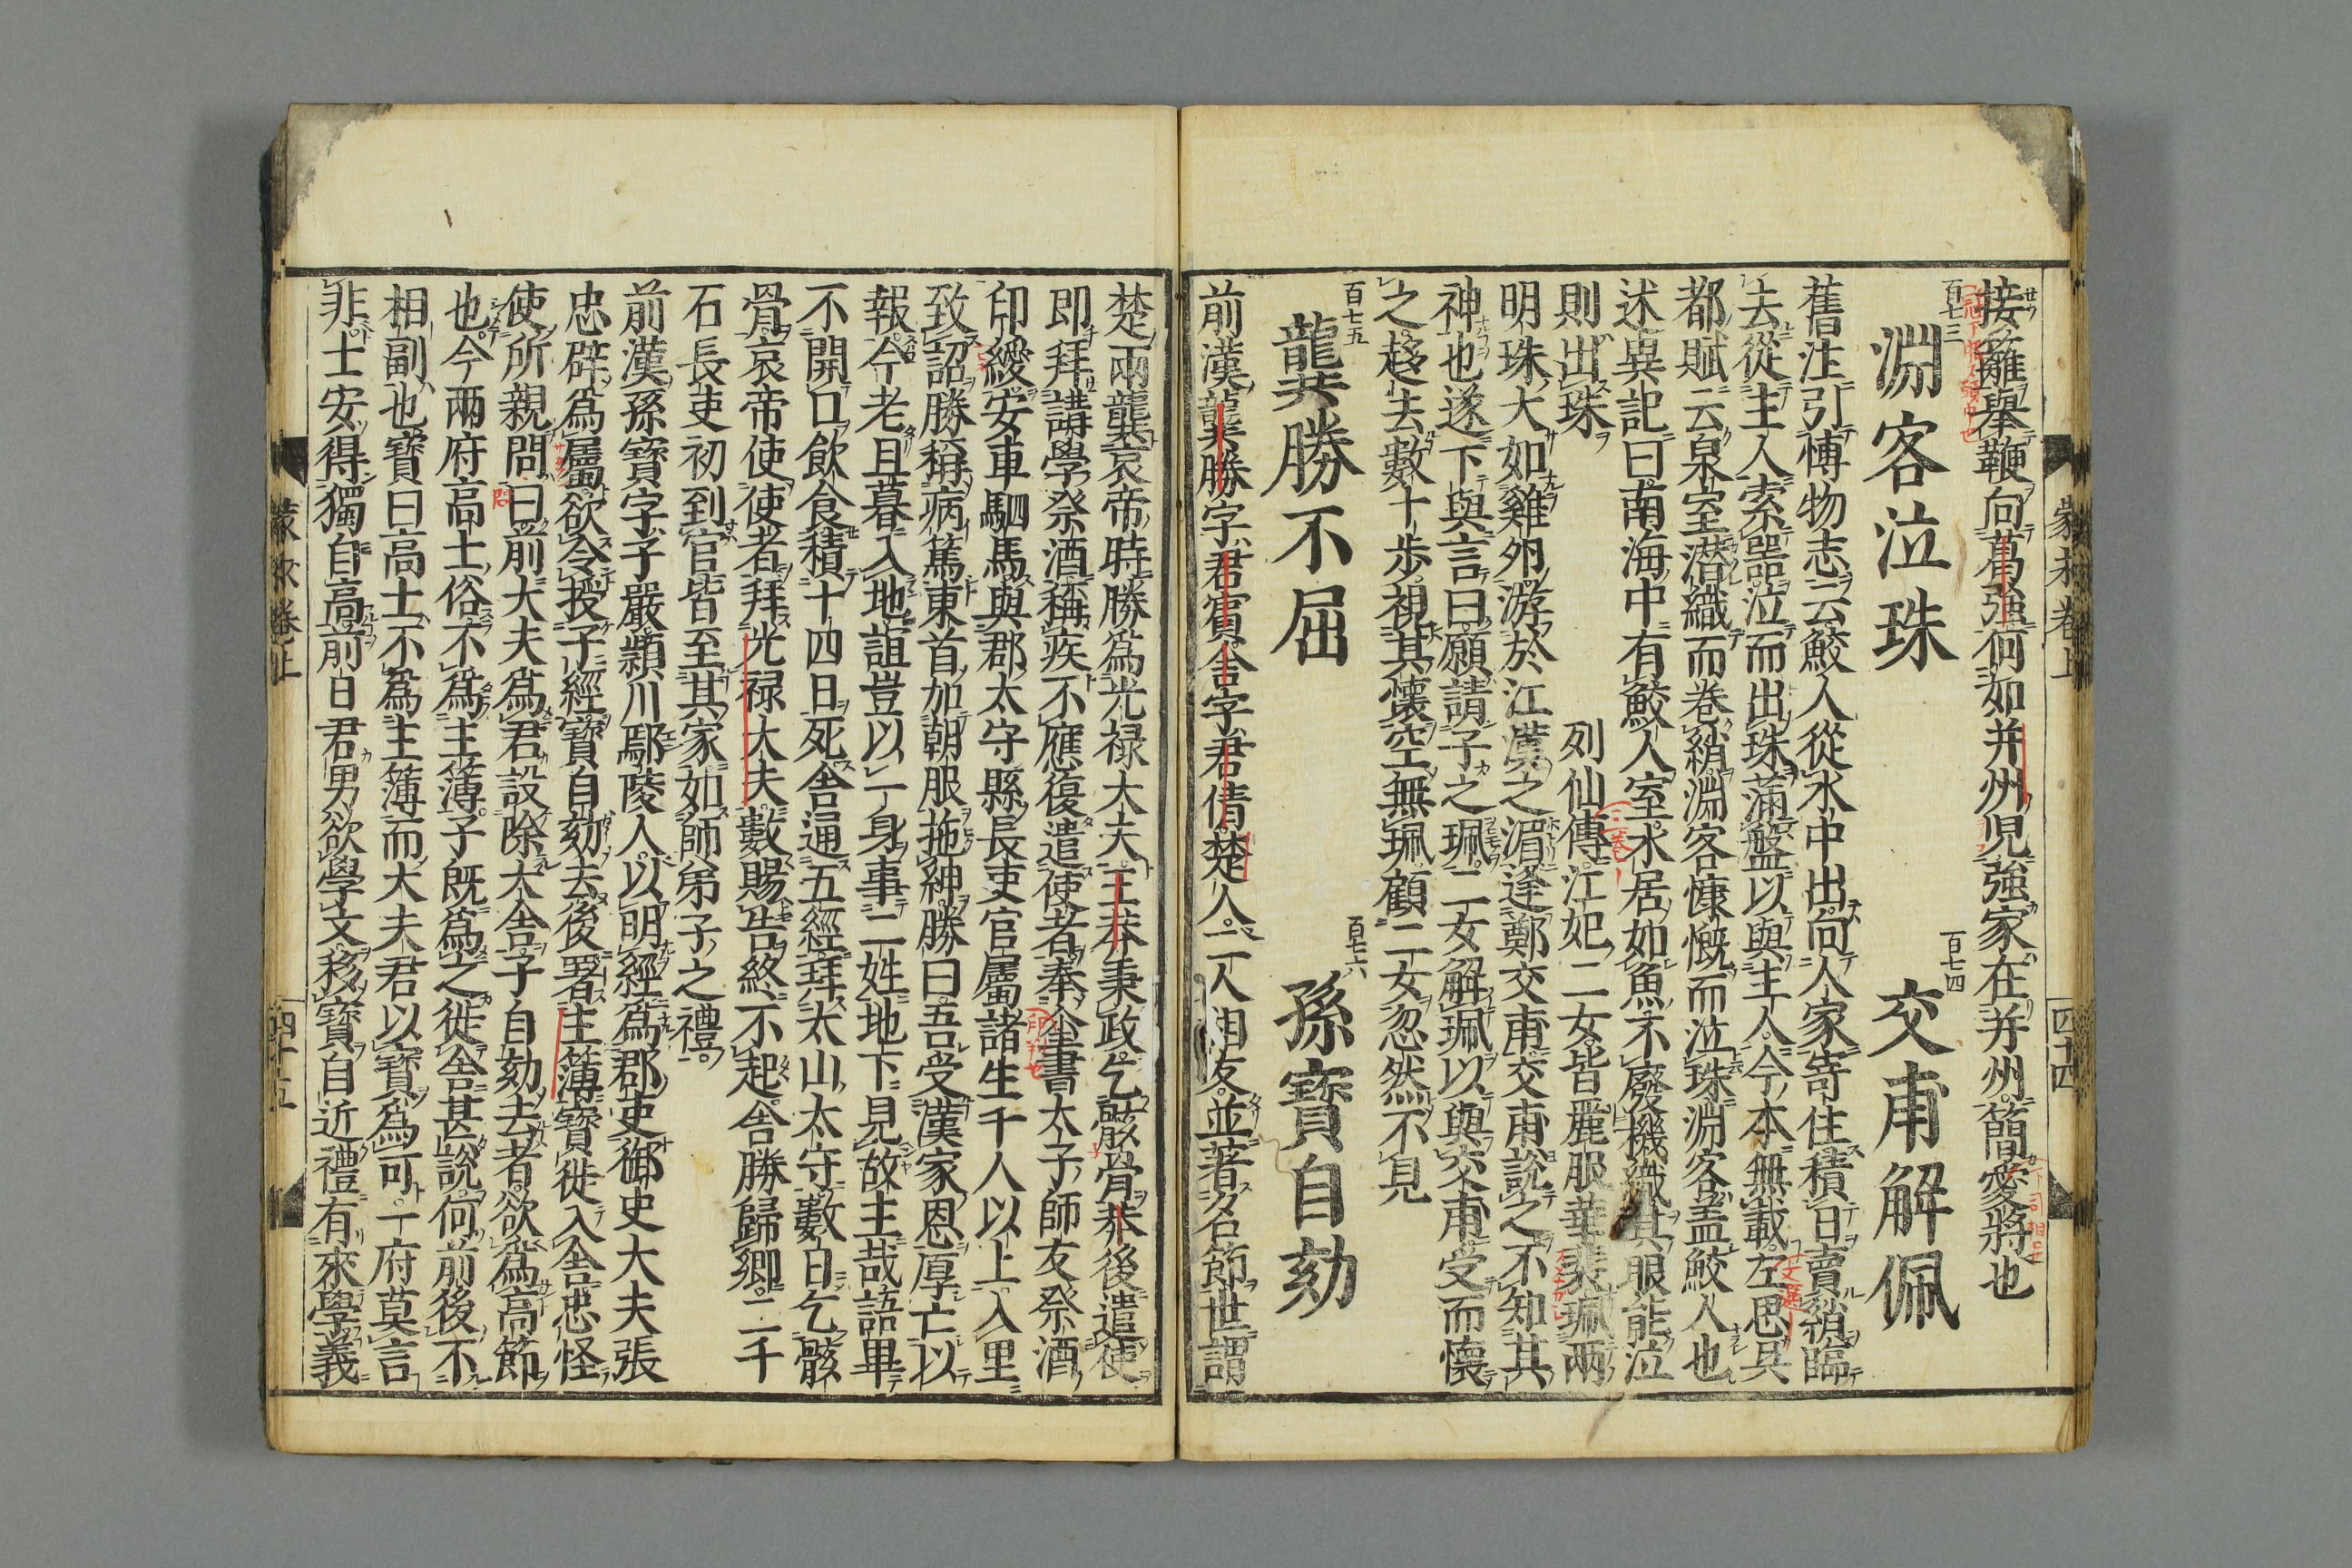 蒙求卷上
四十四
接籬擧鞭向葛彊何如并州児強家在并州簡愛將也
百七三
淵客泣珠
百七四
交甫解佩
舊注引博物志云鮫人從水中出向人家寄住積日賣綃臨
去從主人索噐泣而出珠滿盤以與主人今本無載左思呉
都賦云泉室潜織而卷綃淵客慷慨而泣珠淵客盖鮫人也
述異記曰南海中有鮫人室水居如魚不廢機織其眼能泣
則出珠
列仙傳江妃二女皆麗服華裴珮兩
明珠大如雞卵游於江漢之湄逢鄭交甫交甫説之不知其
神也遂下與言曰願請子之珮二女解珮以與交甫受而懷
之趍去數十歩視其懷空無珮顧二女忽然不見
百七五
龔勝不屈
百七六
孫寶自劾
前漢龔勝字君賓舎字君倩楚人二人相友並著名節世謂
楚兩龔哀帝時勝爲光禄大夫王莽秉政乞骸骨莽後遣使
即拜講學祭酒稱疾不應復遣使者奉璽書太子師友祭酒
印綬安車駟馬與郡太守縣長吏官屬諸生千人以上入里
致詔勝稱病篤東首加朝服拖紳勝曰吾受漢家恩厚亡以
報今老且暮入地誼豈以一身事二姓地下見故主哉語畢
不開口飲食積十四日死舎通五經拜太山太守數日乞骸
骨哀帝使使者拜光禄大夫數賜告終不起舎勝歸郷二千
石長吏初到官皆至其家如師弟子之禮
前漢孫寶字子嚴潁川鄢陵人以明經爲郡吏御史大夫張
忠辟爲屬欲令授子經寶自劾去後署主簿寶徙入舎忠怪
使所親問曰前大夫爲君設除大舎子自劾去者欲爲高節
也今兩府高士俗不爲主簿子既爲之徙舎甚説何前後不
相副也寶曰高士不爲主簿而大夫君以寶爲可一府莫言
非士安得獨自高前日君男欲學文移寶自近禮有來學義
四十五